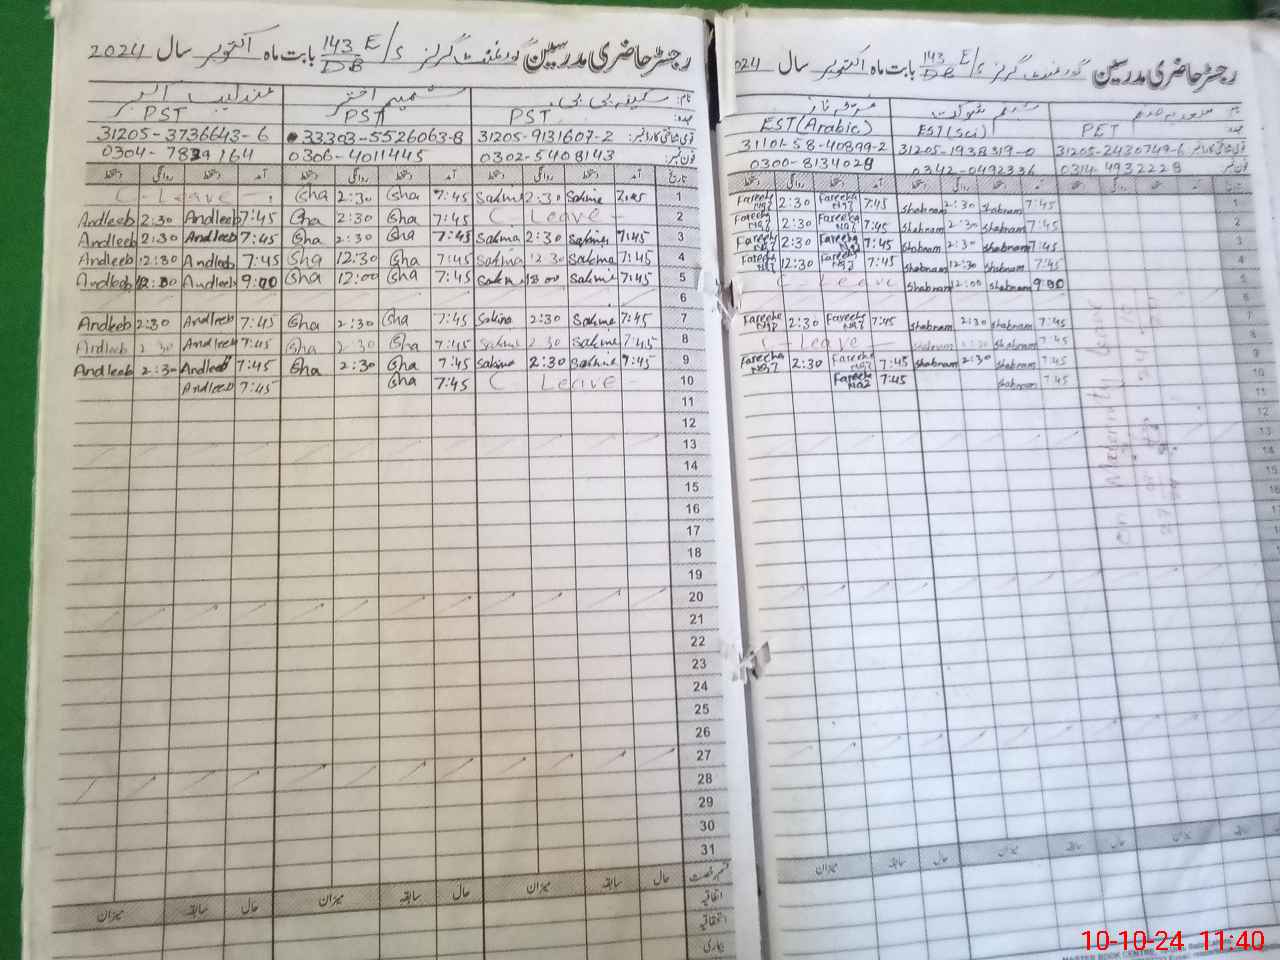 رجسٹر حاضری مدرسین گورنمنٹ گرلز E/S 143/DB بابت ماہ اکتوبر سال 2024
نام: سکینہ بی بی شمیم اختر عندلیب
عہدہ: PST PST PST
قومی شناختی کارڈ نمبر: 31205-9131607-2 33303-5526063-8 31205-3736643-6
فون نمبر: 0302-5408143 0306-4011445
تاریخ آمد دستخط روانگی دستخط آمد دستخط روانگی دستخط آمد دستخط روانگی دستخط
1 7:45 Sakina 2:30 Sakina 7:45 Gha 2:30 Gha C-Leave-
2 C Leave - 7:45 Gha 2:30 Gha 7:45 Andleeb 2:30 Andleeb
3 7:45 Sakina 2:30 Sakina 7:45 Gha 2:30 Gha 7:45 Andleeb 2:30 Andleeb
4 7:45 Sakina 12:30 Sakina 7:45 Gha 12:30 Gha 7:45 Andleeb 12:30 Andleeb
5 7:45 Sakina Sakina 7:45 Gha 12:00 Gha 9:00 Andleeb Andleeb
6
7 7:45 Sakina 2:30 Sakina 7:45 Gha 2:30 Gha 7:45 Andleeb 2:30 Andleeb
8 7:45 Sakina 2:30 Sakina 7:45 Gha 2:30 Gha 7:45 Andleeb 2:30 Andleeb
9 7:45 Sakina 2:30 Sakina 7:45 Gha 2:30 Gha 7:45 Andleeb 2:30 Andleeb
10 C Leave - 7:45 Gha 7:45 Andleeb
11
12
13
14
15
16
17
18
19
20
21
22
23
24
25
26
27
28
29
30
31
حال سابقہ میزان حال سابقہ میزان حال سابقہ میزان
اتفاقیہ
بیماری
رجسٹر حاضری مدرسین گورنمنٹ گرلز E/S 143/DB بابت ماہ اکتوبر سال 2024
نام: شبنم شوکت
عہدہ: PET EST(Sci) EST(Arabic)
قومی شناختی کارڈ نمبر: 31205-2430749-6 31205-1938319-0 31101-58-40899-2
فون نمبر: 0314-4932229 0342-0492336 0300-8134029
تاریخ آمد دستخط روانگی دستخط آمد دستخط روانگی دستخط آمد دستخط روانگی دستخط
1 7:45 Shabnam 2:30 Shabnam 7:45 Fareeha Naz 2:30 Fareeha Naz
2 7:45 Shabnam 2:30 Shabnam 7:45 Fareeha Naz 2:30 Fareeha Naz
3 7:45 Shabnam 2:30 Shabnam 7:45 Fareeha Naz 2:30 Fareeha Naz
4 7:45 Shabnam 12:30 Shabnam 7:45 Fareeha Naz 12:30 Fareeha Naz
5 9:00 Shabnam 12:00 Shabnam C-Leave
6
7 7:45 Shabnam 2:30 Shabnam 7:45 Fareeha Naz 2:30 Fareeha Naz
8 7:45 Shabnam 2:30 Shabnam C-Leave-
9 7:45 Shabnam 2:30 Shabnam 7:45 Fareeha Naz 2:30 Fareeha Naz
10 7:45 Shabnam 7:45 Fareeha Naz
11
12
13
14
On Maternity Leave
میزان سابقہ حال میزان سابقہ حال میزان
MASTER BOOK CENTRE
10-10-24 11:40